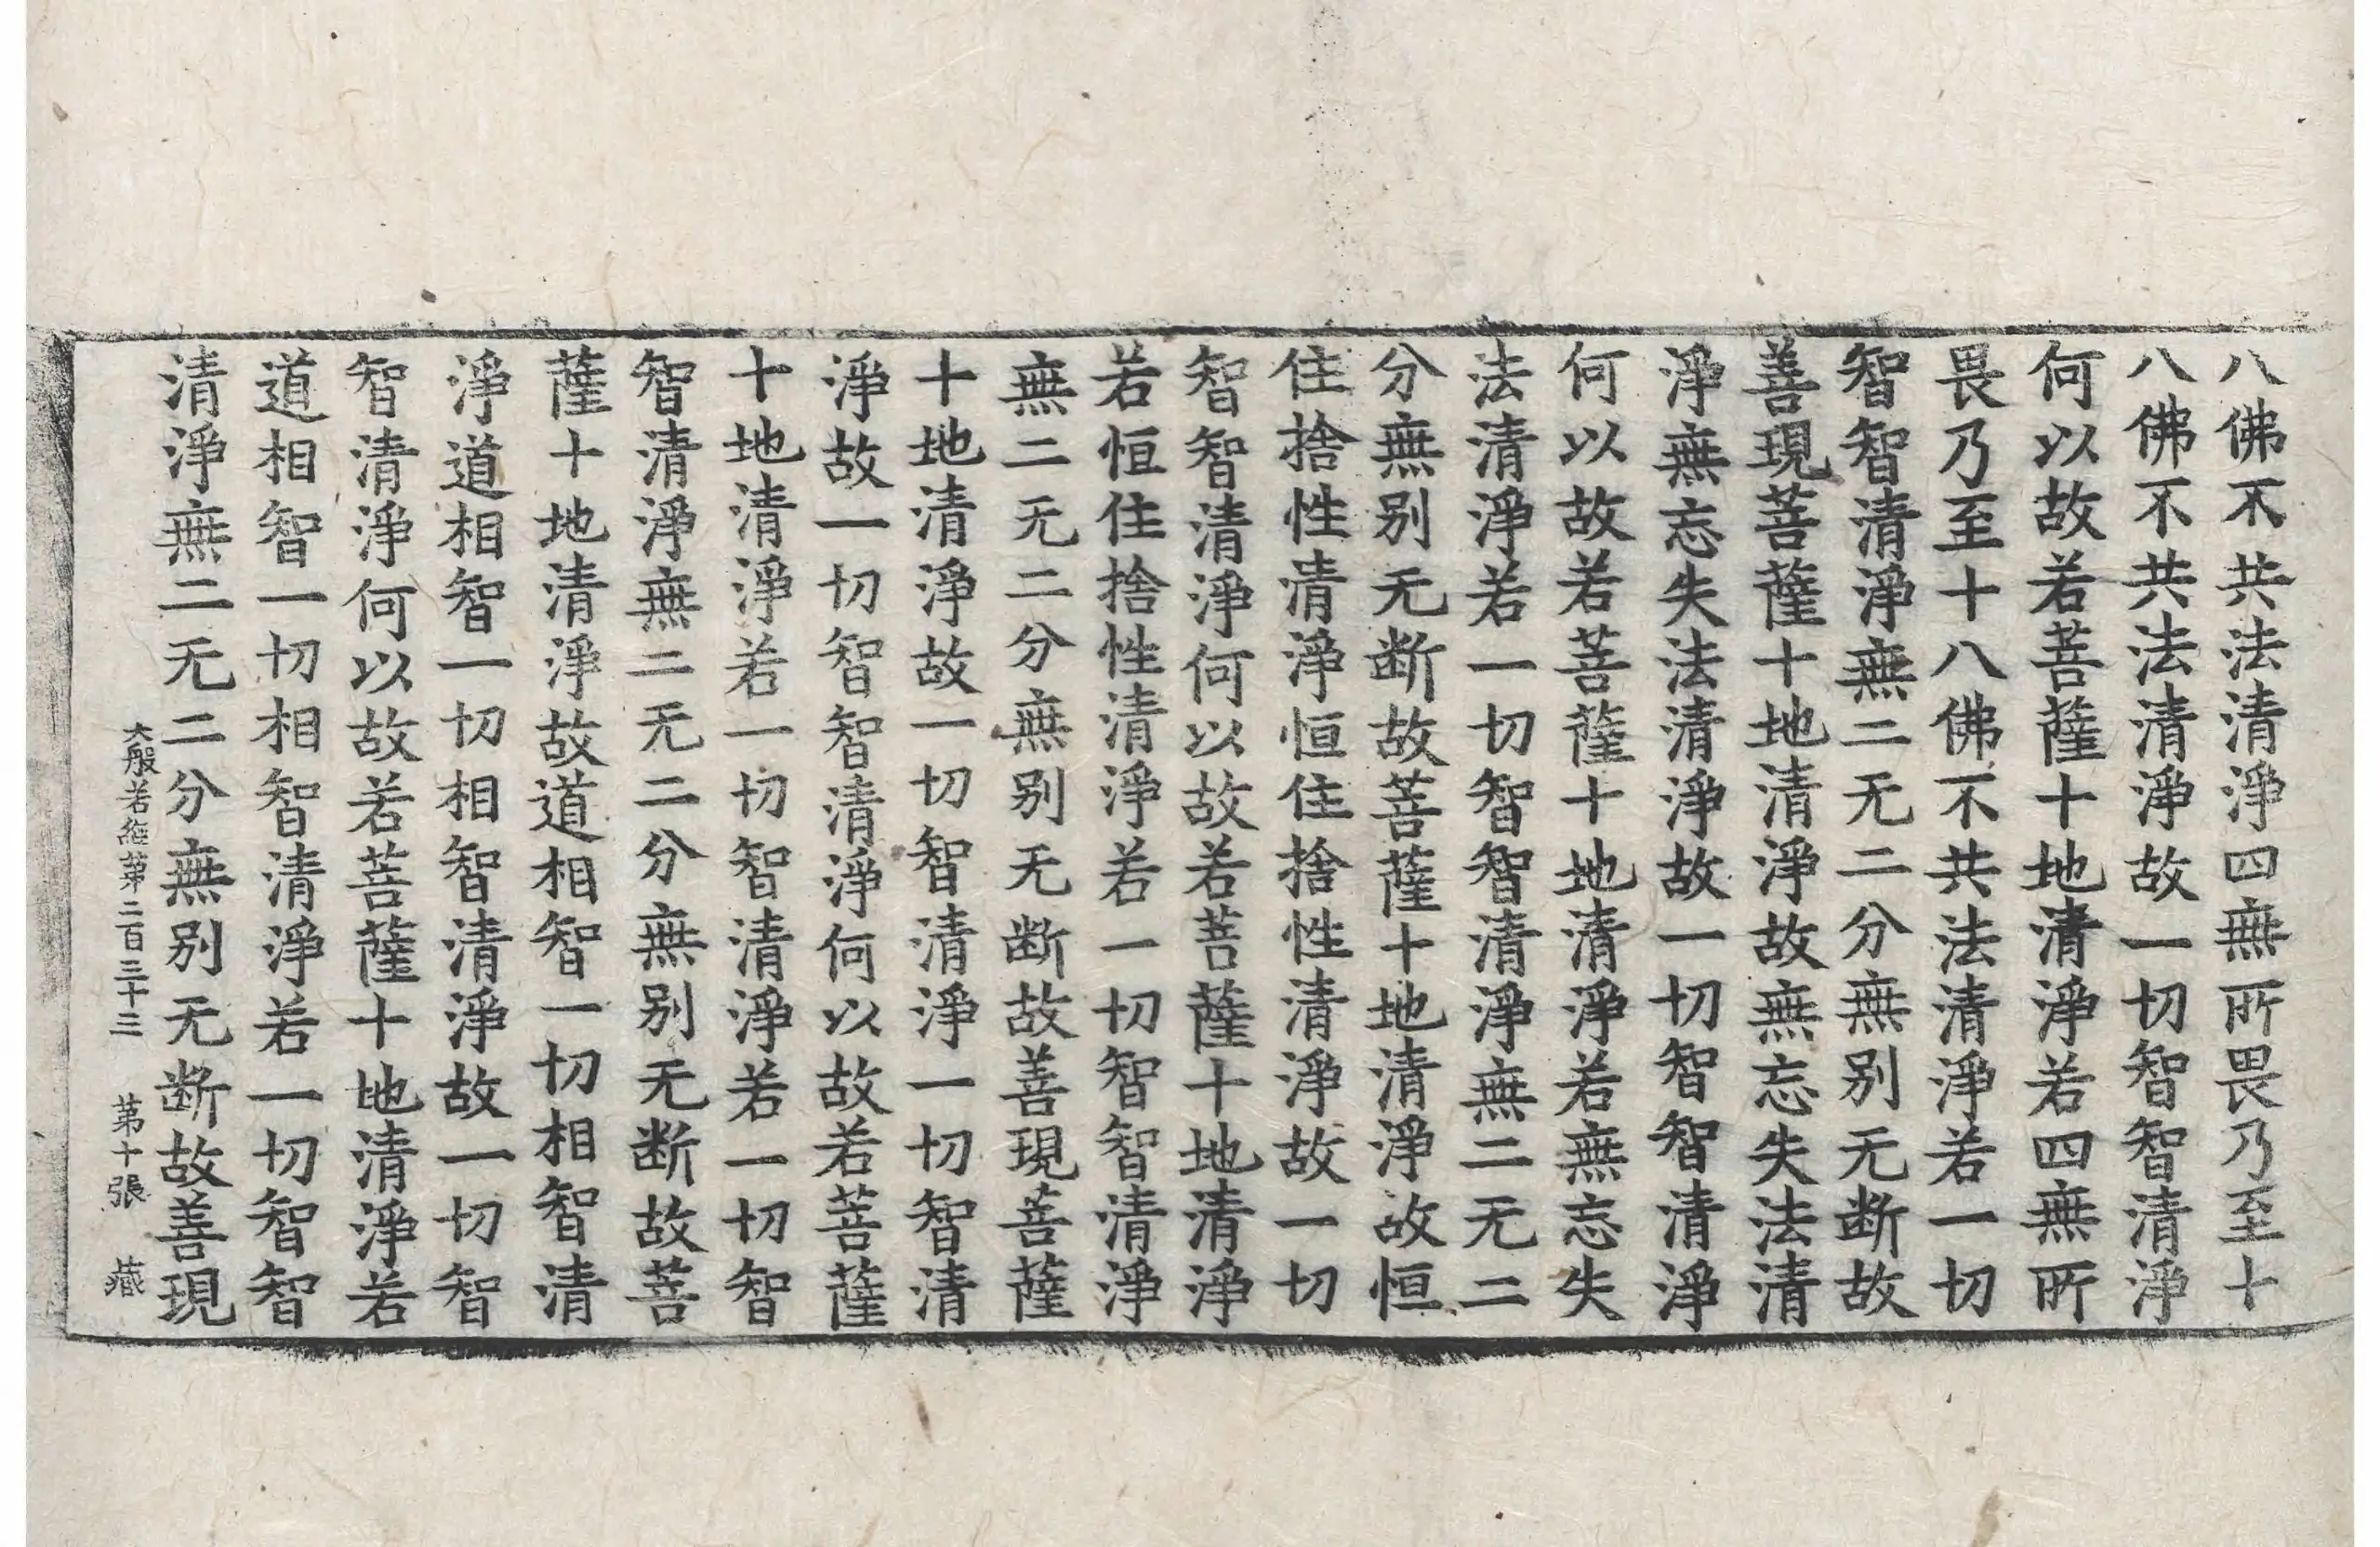 八佛不共法清淨四無所畏乃至十
八佛不共法清淨故一切智智清淨
何以故若菩薩十地清淨若四無所
畏乃至十八佛不共法清淨若一切
智智清淨無二无二分無别无断故
善現菩薩十地清淨故無忘失法清
淨無忘失法清淨故一切智智清淨
何以故若菩薩十地清淨若無忘失
法清淨若一切智智清淨無二无二
分無别无断故菩薩十地清淨故恒
住捨性清淨恒住捨性清淨故一切
智智清淨何以故若菩薩十地清淨
若恒住捨性清淨若一切智智清淨
無二无二分無别无断故善現菩薩
十地清淨故一切智清淨一切智清
淨故一切智智清淨何以故若菩薩
十地清淨若一切智清淨若一切智
智清淨無二无二分無别无断故菩
薩十地清淨故道相智一切相智清
淨道相智一切相智清淨故一切智
智清淨何以故若菩薩十地清淨若
道相智一切相智清淨若一切智智
清淨無二无二分無别无断故善現
大般若經第二百三十三 第十張 藏